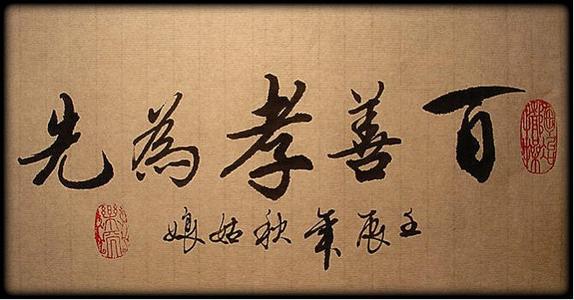 百善孝為先
壬辰年秋姑娘